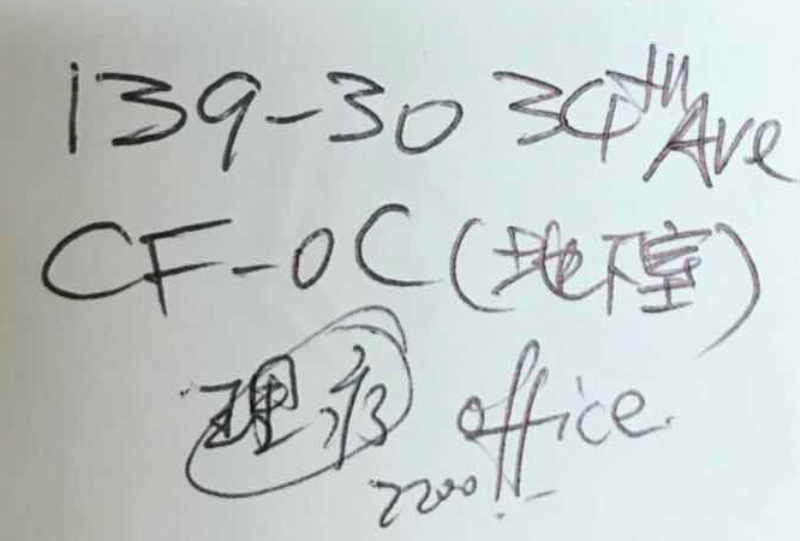 139-30 34th Ave
CF-0C (地下室)
理疗 office
2200